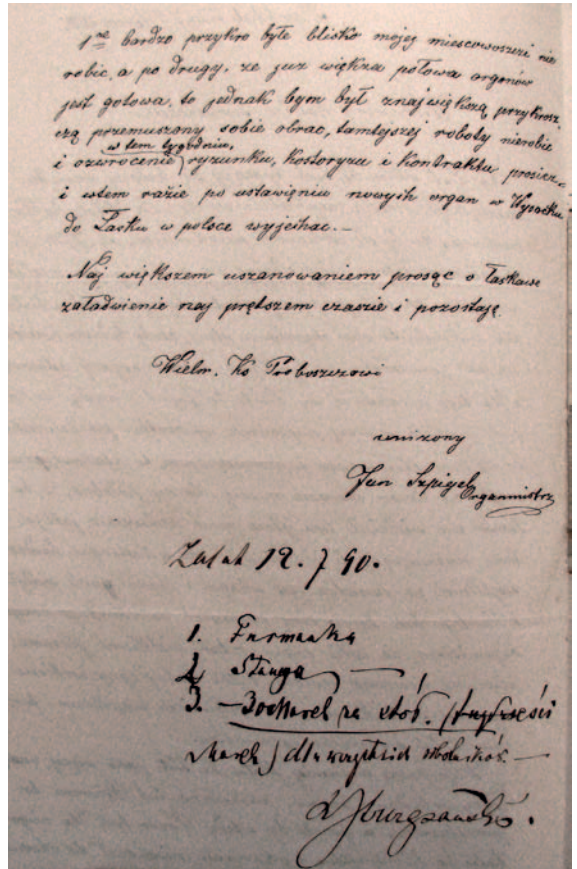 1ne bardzo przykro było blisko mojej miescowoszczi nie
robic, a po drugy, ze juz większa połowa organów
jest gotowa, to jednak bym był znajwiększą przykrosz-
czą przemuszony sobie obrac, tamtejszej roboty nierobic
w tem tygodniu,
i ozwrócenie ryzunku, kostorysu i kontraktu prosicz.-
i wtem razie po ustawięniu nowych organ w Wysocku
do Łasku w polsce wyjeihac.—
Naj większem uszanowaniem prosąc o łaskawe
załadwienie naj prętszem czaszie i pozostaję
Wielm. Ks Proboszczowi
unizony
Jan Szpigel
Organmistrz
12. 7 90.
1. Furmanka
2,
3. — na
Marek) dla wszystkich